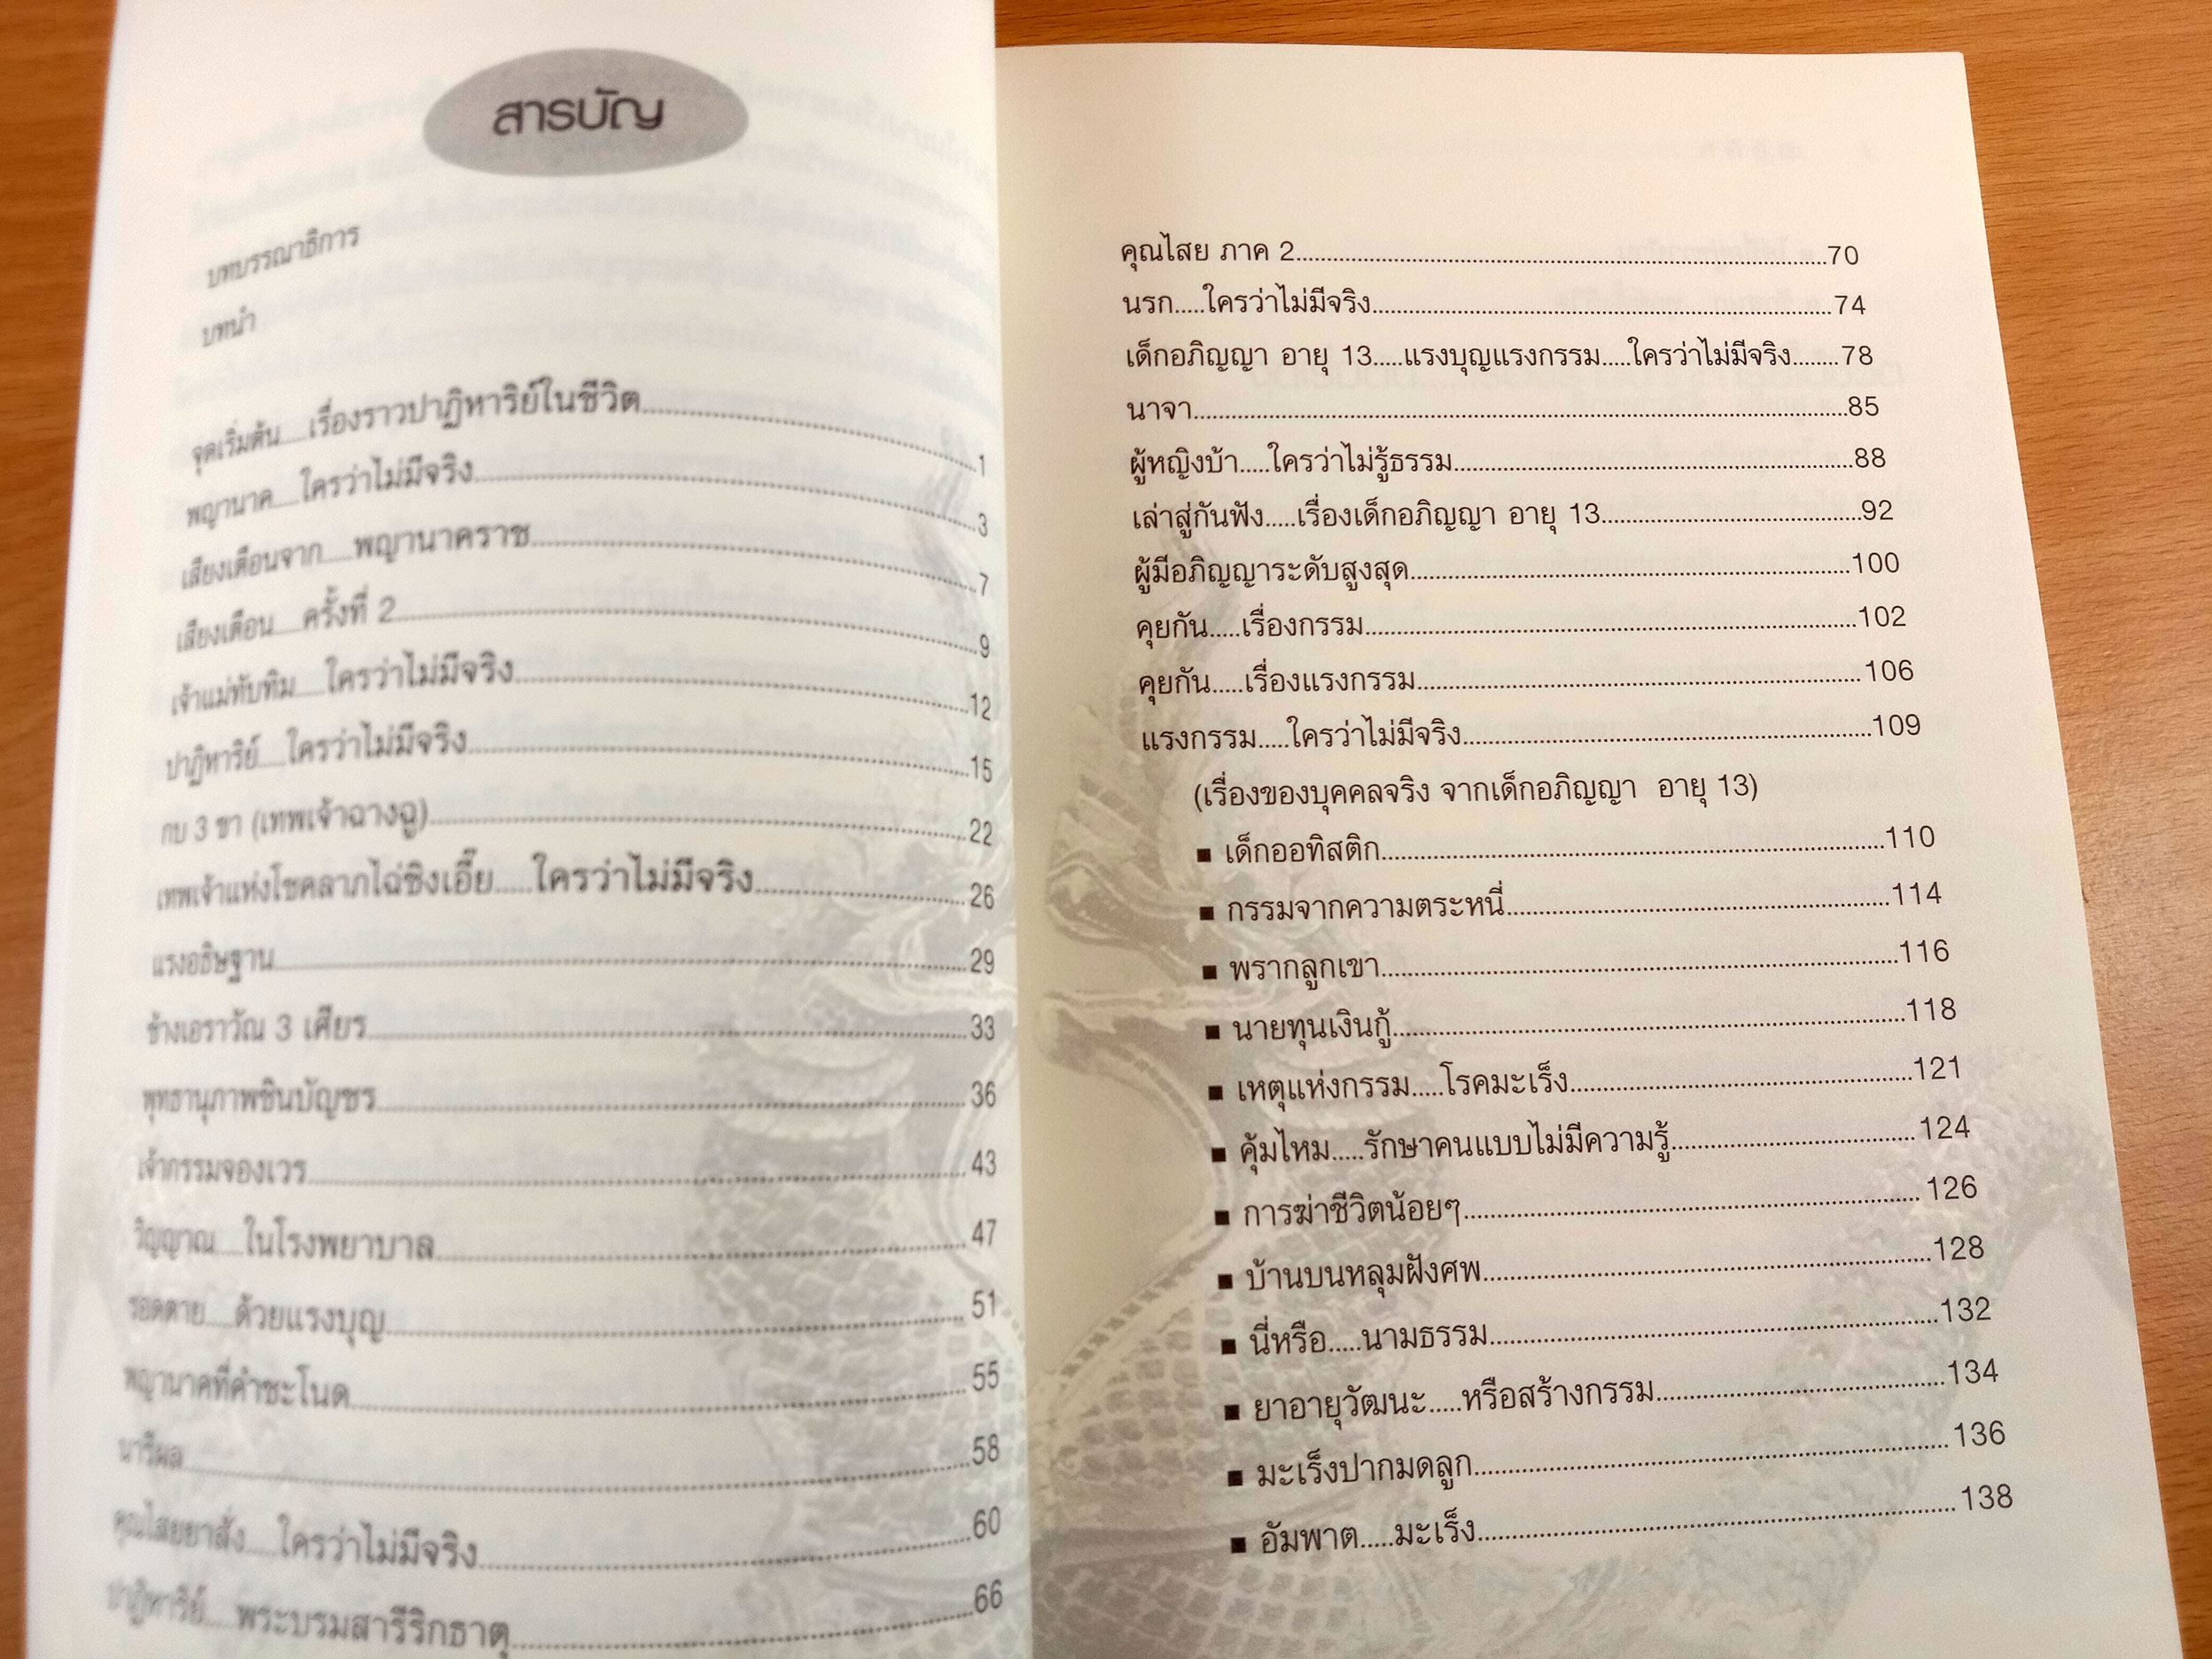 สารบัญ
บทบรรณาธิการ
บทนำ
จุดเริ่มต้น.....เรื่องราวปาฏิหาริย์ในชีวิต..........1
พญานาค.....ใครว่าไม่มีจริง..........3
เสียงเตือนจาก.....พญานาคราช..........7
เสียงเตือน.....ครั้งที่ 2..........9
เจ้าแม่ทับทิม.....ใครว่าไม่มีจริง..........12
ปาฏิหาริย์.....ใครว่าไม่มีจริง..........15
กบ 3 ขา (เทพเจ้าฉางฉู)..........22
เทพเจ้าแห่งโชคลาภไฉ่ซิงเอี๊ย.....ใครว่าไม่มีจริง..........26
แรงอธิษฐาน..........29
ช้างเอราวัณ 3 เศียร..........33
พุทธานุภาพชินบัญชร..........36
เจ้ากรรมจองเวร..........43
วิญญาณ.....ในโรงพยาบาล..........47
รอดตาย.....ด้วยแรงบุญ..........51
พญานาคที่คำชะโนด..........55
นารีผล..........58
คุณไสยยาสั่ง.....ใครว่าไม่มีจริง..........60
ปาฏิหาริย์.....พระบรมสารีริกธาตุ..........66
คุณไสย ภาค 2..........70
นรก.....ใครว่าไม่มีจริง..........74
เด็กอภิญญา อายุ 13.....แรงบุญแรงกรรม.....ใครว่าไม่มีจริง........78
นาจา..........85
ผู้หญิงบ้า.....ใครว่าไม่รู้ธรรม..........88
เล่าสู่กันฟัง.....เรื่องเด็กอภิญญา อายุ 13..........92
ผู้มีอภิญญาระดับสูงสุด..........100
คุยกัน.....เรื่องกรรม..........102
คุยกัน.....เรื่องแรงกรรม..........106
แรงกรรม.....ใครว่าไม่มีจริง..........109
(เรื่องของบุคคลจริง จากเด็กอภิญญา อายุ 13)
■ เด็กออทิสติก..........110
■ กรรมจากความตระหนี่..........114
■ พรากลูกเขา..........116
■ นายทุนเงินกู้..........118
■ เหตุแห่งกรรม.....โรคมะเร็ง..........121
■ คุ้มไหม.....รักษาคนแบบไม่มีความรู้..........124
■ การฆ่าชีวิตน้อยๆ..........126
■ บ้านบนหลุมฝังศพ..........128
■ นี่หรือ.....นามธรรม..........132
■ ยาอายุวัฒนะ.....หรือสร้างกรรม..........134
■ มะเร็งปากมดลูก..........136
■ อัมพาต.....มะเร็ง..........138